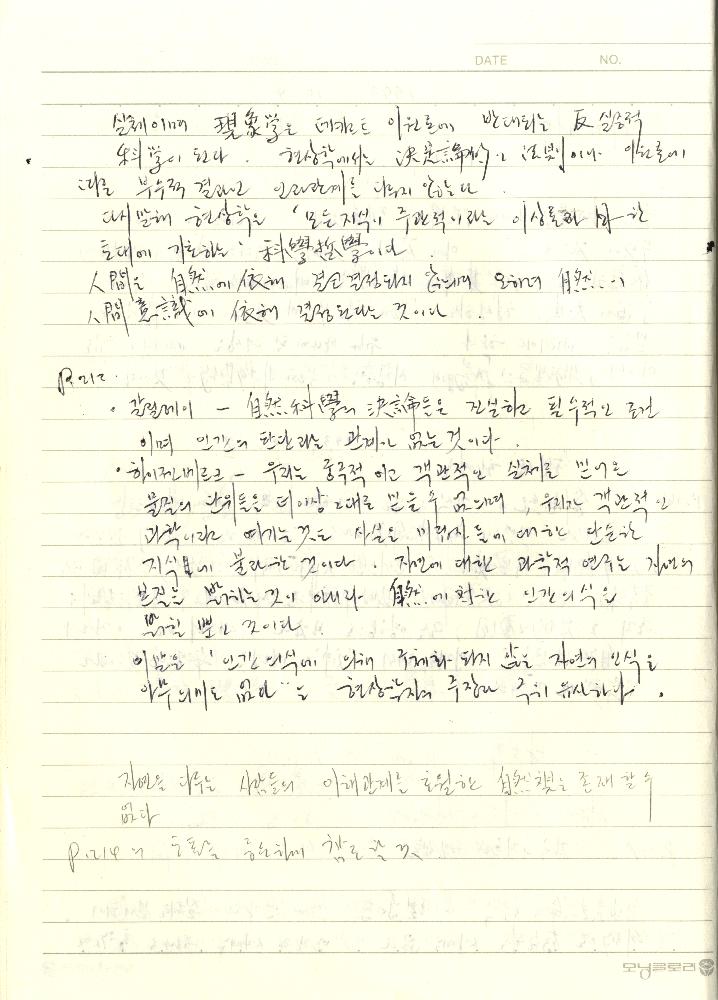 DATE NO.
실체이며 現象学은 데카르트 이원론에 반대되는 反실증적
科学이 된다. 현상학에서는 決定論的인 法則이나 이원론에
따른 부수적 결과인 인과관계를 다루지 않는다.
다시 말해 현상학은 '모든 지식이 주관적이라는 이상론과 한
토대에 기초하는' 科學哲學이다.
人間은 自然에 依해 결코 결정되지 않으며 오히려 自然이
人間意識에 依해 결정된다는 것이다.
P.212.
· 갈릴레이 - 自然科學의 決論들은 진실하고 필수적인 조건
이며 인간의 판단과는 관계가 없는 것이다.
· 하이젠베르크 - 우리는 궁극적이고 객관적인 실체를 믿어온
물질의 단위들을 더이상 그대로 믿을 수 없으며, 우리가 객관적인
과학이라고 여기는 것은 사실은 미립자들에 대한 단순한
지식에 불과한 것이다. 자연에 대한 과학적 연구는 자연의
본질을 밝히는 것이 아니라 自然에 대한 인간의식을
밝힐 뿐인 것이다.
이 말은 '인간의식에 의해 주체화되지 않는 자연의 인식은
아무 의미도 없다'는 현상학자의 주장과 극히 유사하다.
자연을 다루는 사람들의 이해관계를 초월한 自然은 존재할 수
없다
P.214의 도표를 중요하게 참고할 것
모닝글로리